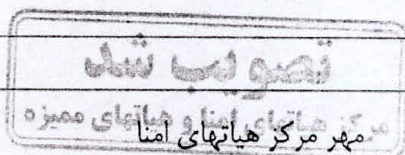 تصویب شد
مرکز هیاتهای امنا و هیاتهای ممیزه
مهر مرکز هیاتهای امنا